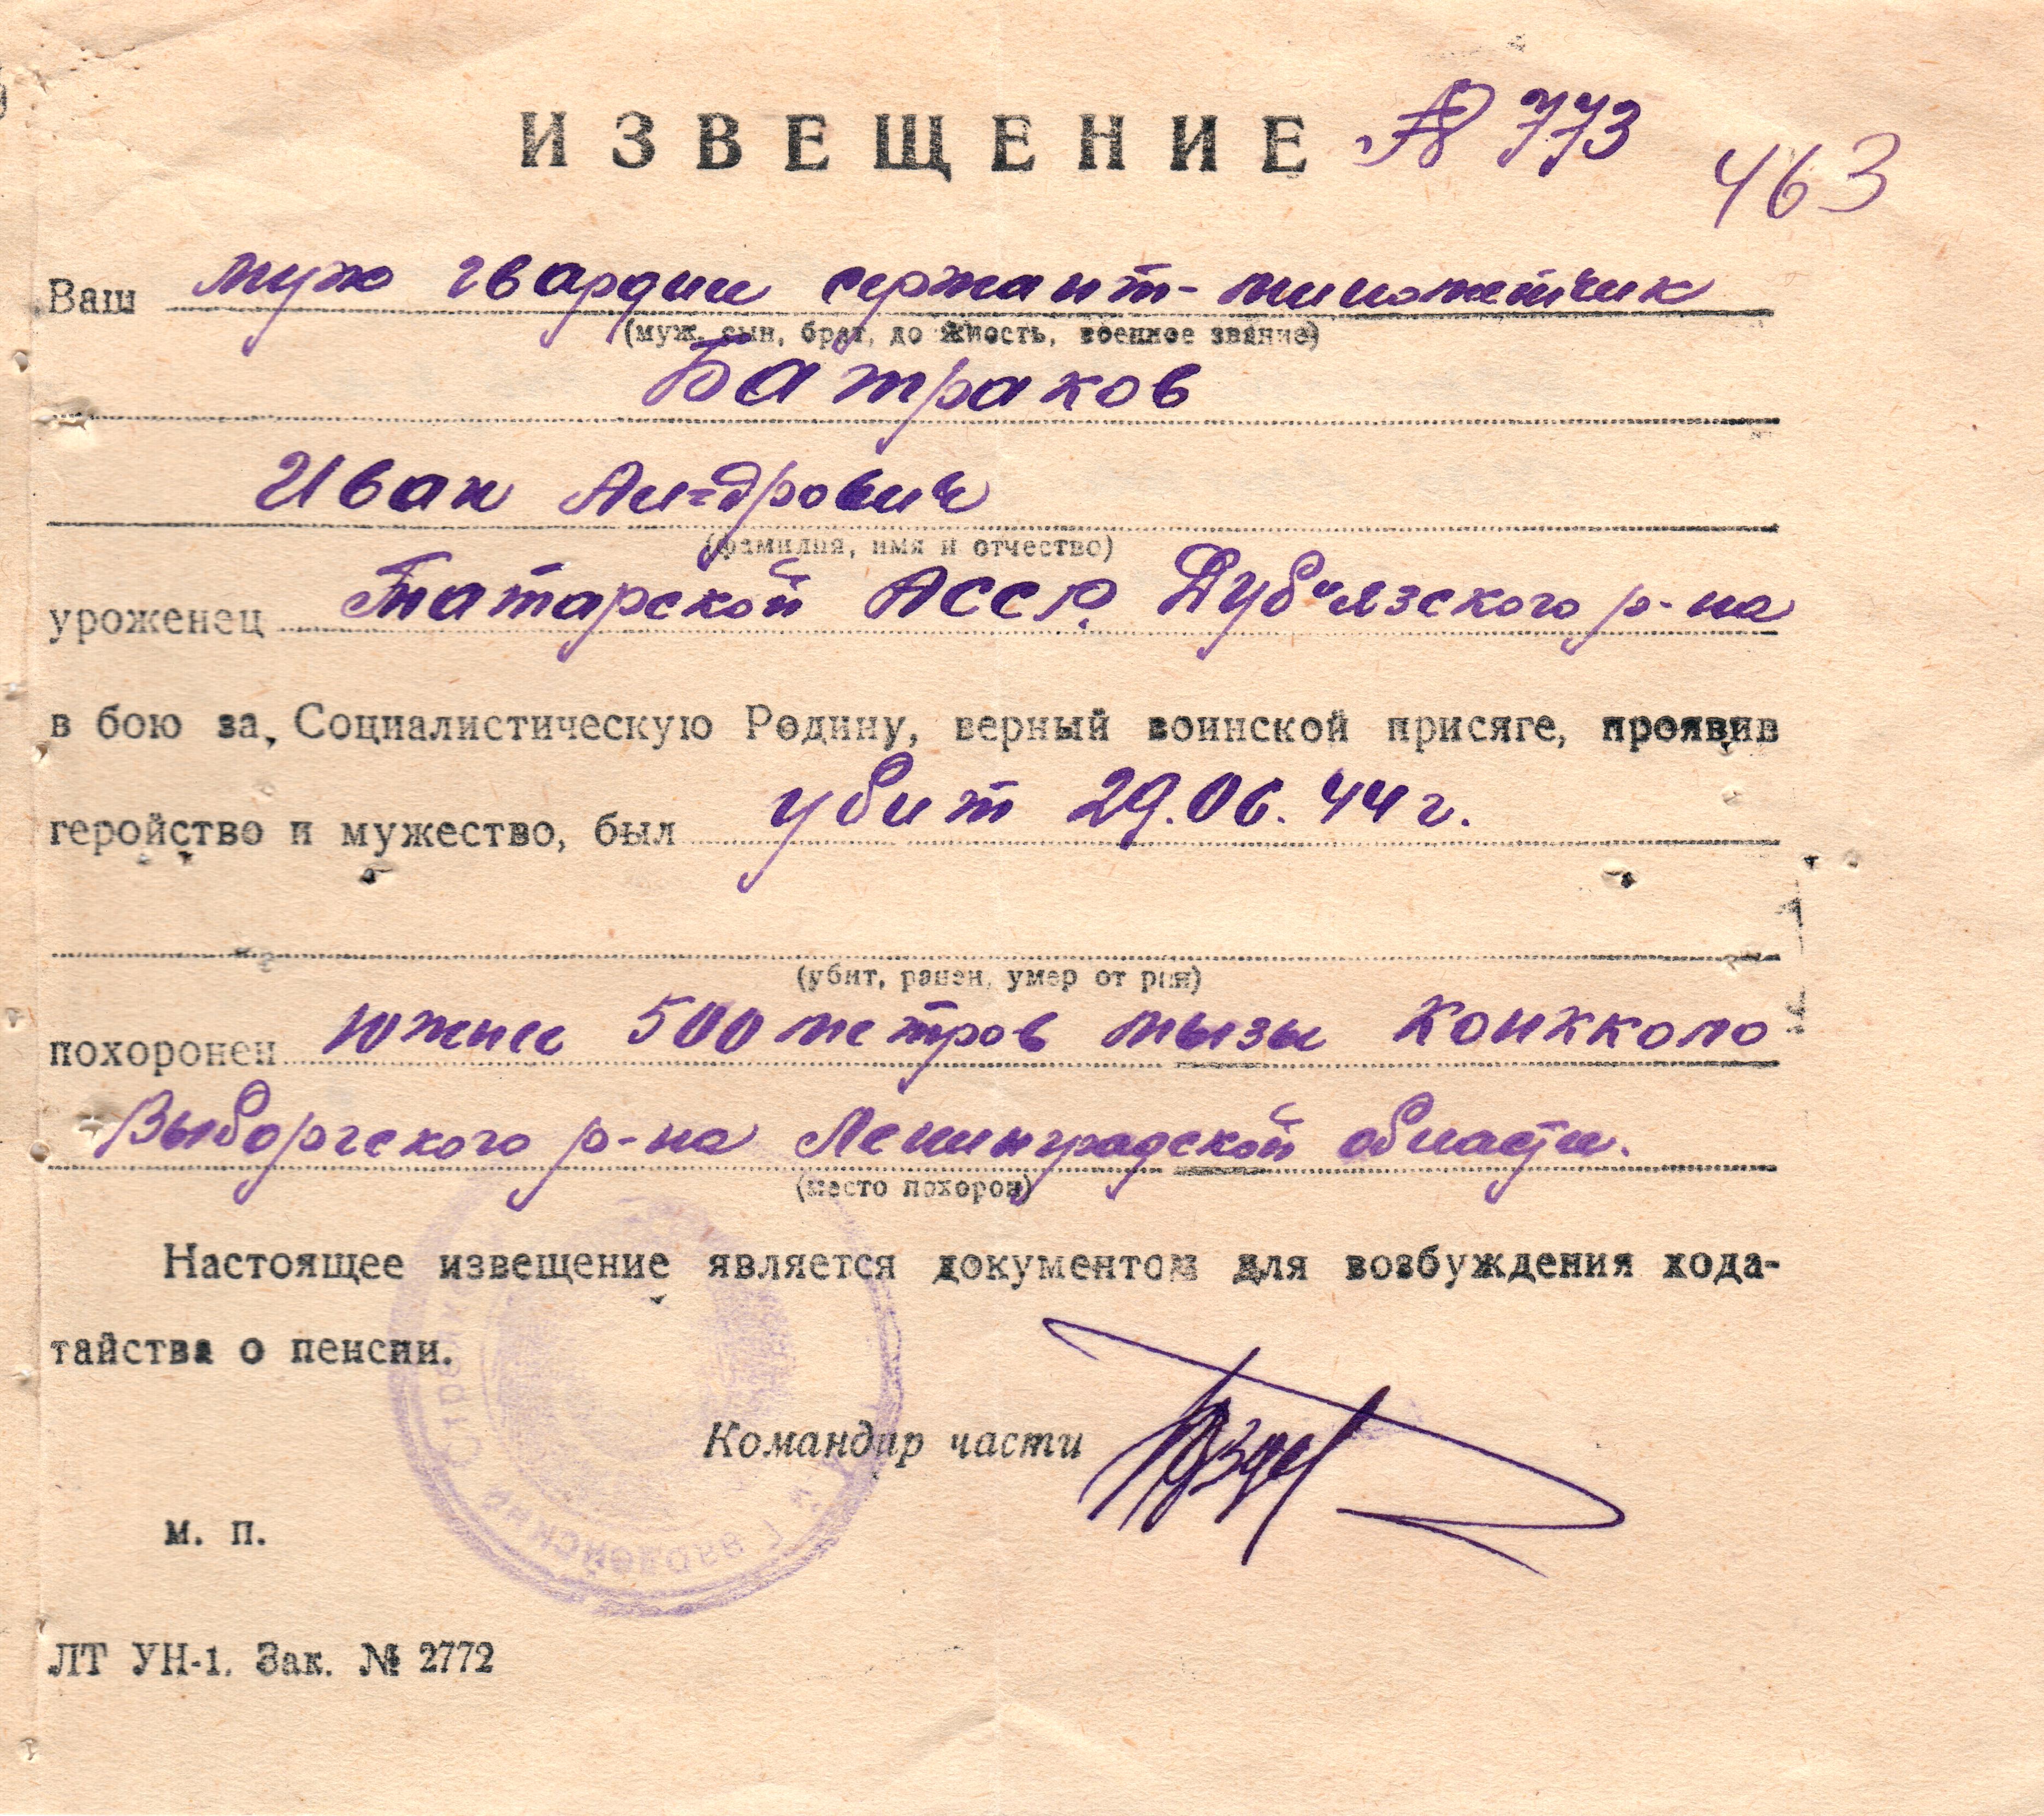 ИЗВЕЩЕНИЕ № 773
463
Ваш муж гвардии сержант-минометчик
(муж, сын, брат, должность, военное звание)
Батраков
Иван Андрович
(фамилия, имя и отчество)
уроженец Татарской АССР. Дубъязского р-на
в бою за Социалистическую Родину, верный воинской присяге, проявив
геройство и мужество, был убит 29.06.44 г.
(убит, ранен, умер от ран)
похоронен южнее 500 метров мызы Конкколо
Выборгского р-на Ленинградской области.
(место похорон)
Настоящее извещение является документом для возбуждения хода-
тайства о пенсии.
Командир части
м. п.
ЛТ УН-1. Зак. № 2772